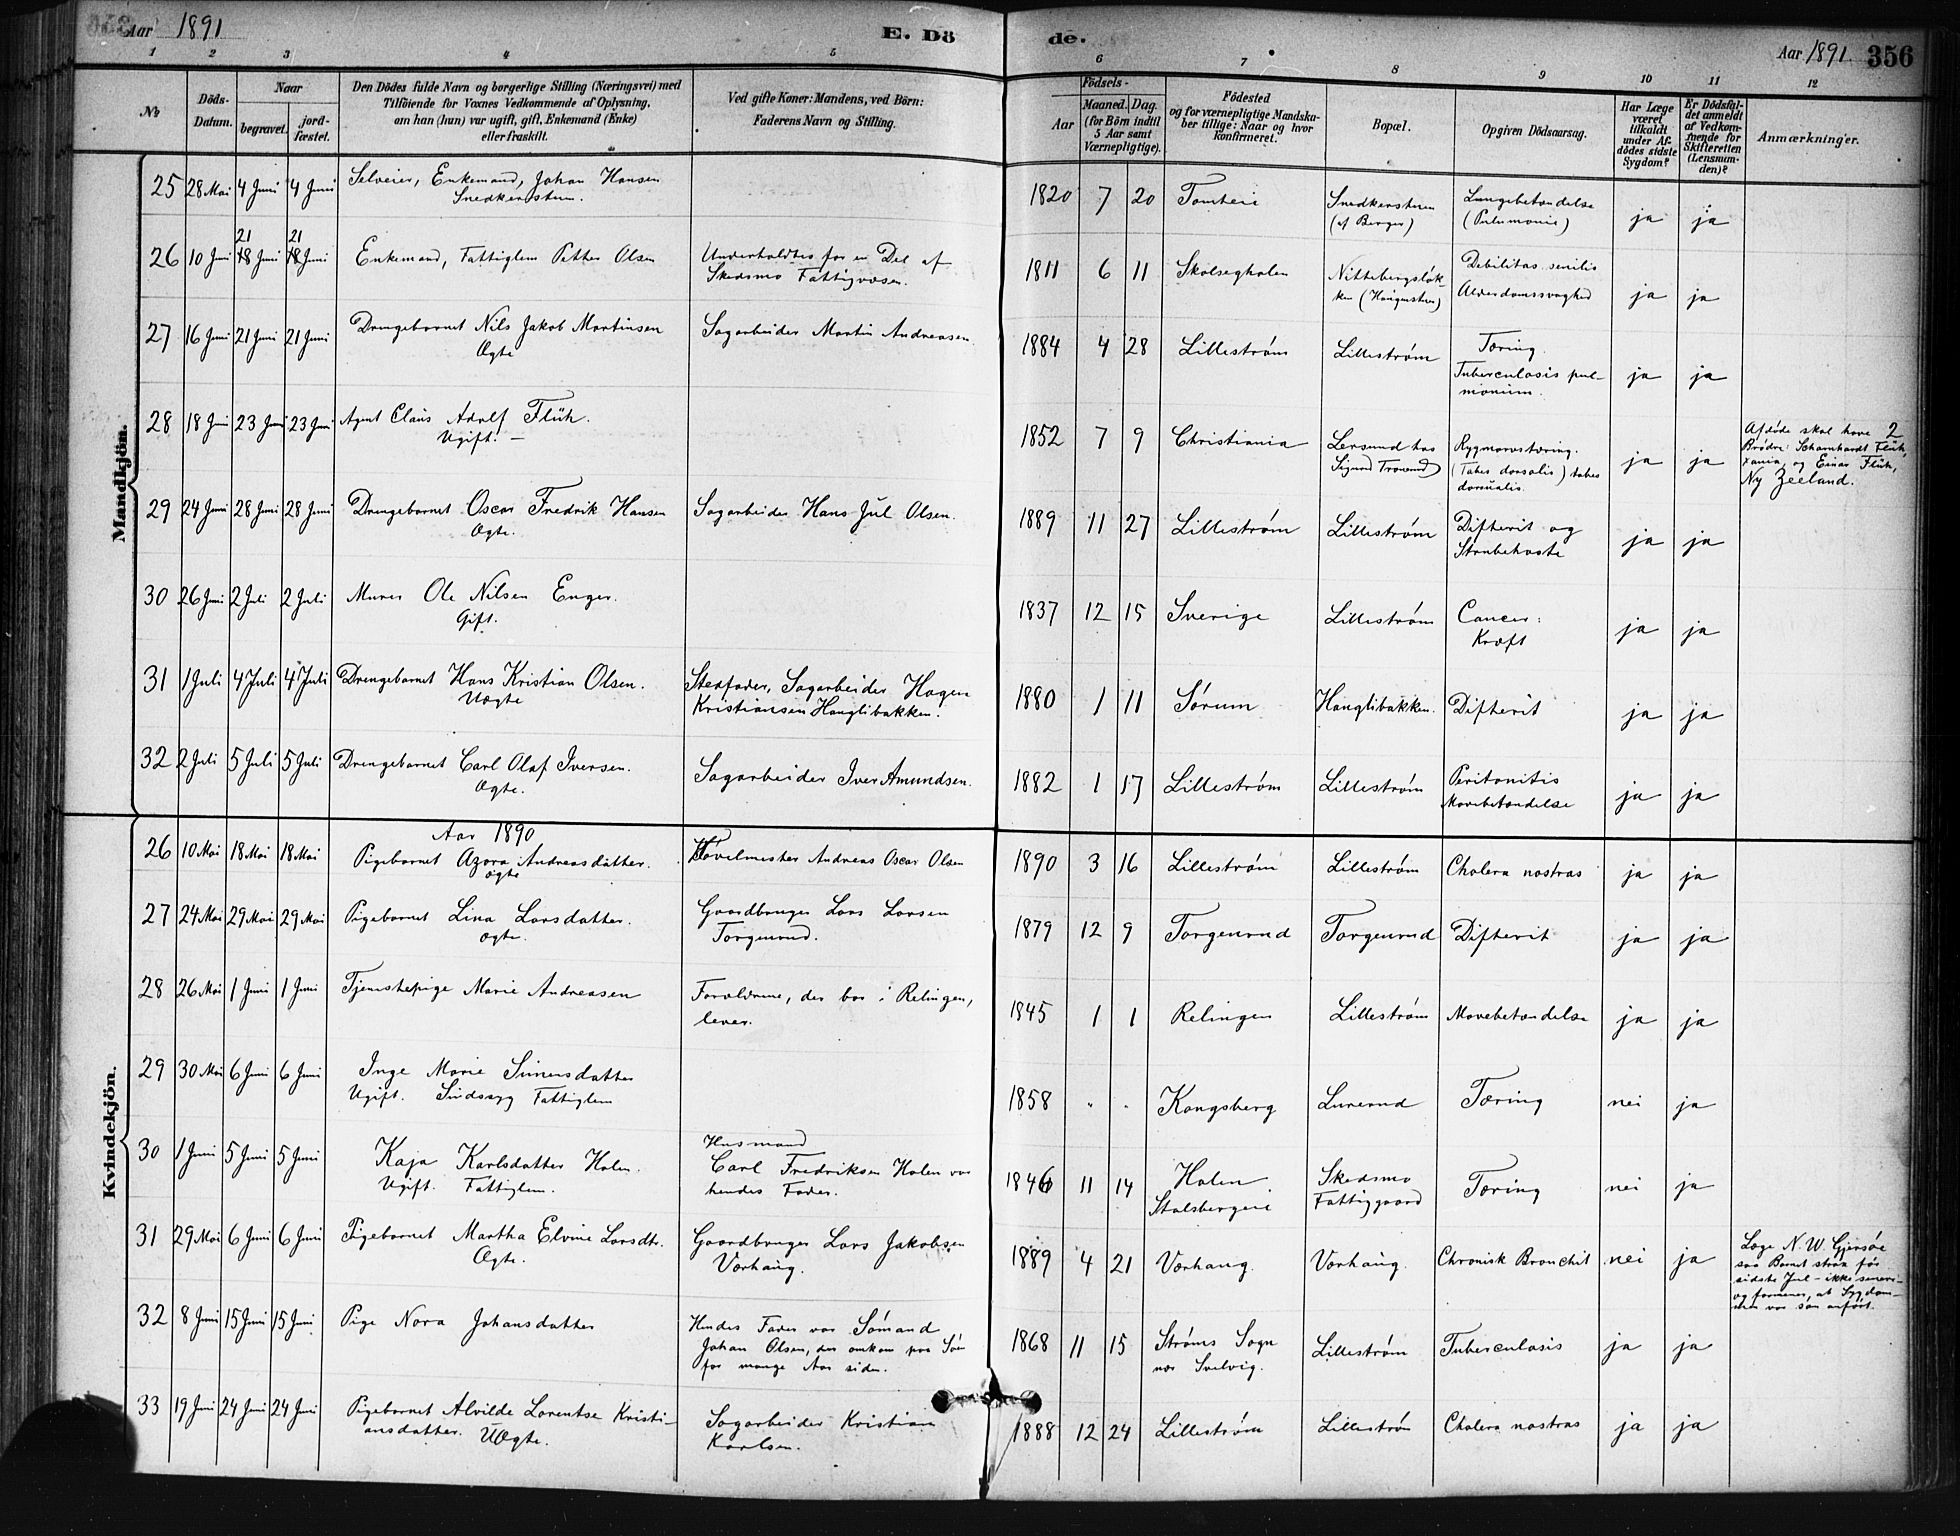 Aar 1891 E. Döde. Aar 1891. 356
1 2 3 4 5 6 7 8 9 10 11 12
No
Döds-Datum.
Naar
begravet.
jord-fæstet.
Den Dödes fulde Navn og borgerlige Stilling (Næringsvei) med
Tilföiende for Voxnes Vedkommende af Oplysning,
om han (hun) var ugift, gift, Enkemand (Enke)
eller fraskilt.
Ved gifte Koner: Mandens, ved Börn:
Faderens Navn og Stilling.
Födsels-
Aar
Maaned. Dag.
(for Börn indtil
5 Aar samt
Værnepligtige).
Födested
og for værnepligtige Mandska-
ber tillige: Naar og hvor
konfirmeret.
Bopæl.
Opgiven Dödsaarsag.
Har Læge
været
tilkaldt
under Af-
dödes sidste
Sygdom?
Er Dödsfal-
det anmeldt
af Vedkom-
mende for
Skifteretten
(Lensman-
den)?
Anmærkninger.
Mandkjön.
25 28 Mai 4 Juni 4 Juni Selveier, Enkemand, Johan Hansen 1820 7 20 Tomteie Snedkerstuen Lungebetændelse ja ja
Snedkerstuen. (af Berger) (Pulumonie)
21 21
26 10 Juni 18 Juni 18 Juni Enkemand, Fattiglem Petter Olsen Underholdtes for en Del af 1811 6 11 Debilitas senilis ja ja
Skedsmo Fattigvæsen. Alderdomssvaghed
27 16 Juni 21 Juni 21 Juni Drengebarnet Nils Jakob Martinsen Sagarbeider Martin Andreasen. 1884 4 28 Lillestrøm Lillestrøm Tæring. ja ja
Ægte Tuberculosis pul-
monium.
28 18 Juni 23 Juni 23 Juni Agent Claus Adolf Flüh. 1852 7 9 Christiania Rygmarvstæring. ja ja Afdøde skal have 2
Ugift. — (Tabes dorsalis) tabes Brødre: Scharnhardt Flüh,
dorsualis. xania, og Einar Flüh,
Ny Zeeland.
29 24 Juni 28 Juni 28 Juni Drengebarnet Oscar Fredrik Hansen Sagarbeider Hans Jul Olsen. 1889 11 27 Lillestrøm Lillestrøm Difterit og ja ja
Ægte. Strubehoste
30 26 Juni 2 Juli 2 Juli Murer Ole Nilsen Enger. 1837 12 15 Sverige Lillestrøm Cancer: ja ja
Gift. Kræft
31 1 Juli 4 Juli 4 Juli Drengebarnet Hans Kristian Olsen. Stedfader, Sagarbeider Hagen 1880 1 11 Sørum Hauglibakken. Difterit ja ja
Uægte Kristiansen Hauglibakken.
32 2 Juli 5 Juli 5 Juli Drengebarnet Carl Olaf Iversen. Sagarbeider Iver Amundsen. 1882 1 17 Lillestrøm Lillestrøm Peritonitis ja ja
Ægte. Mavebetændelse
Kvindekjön.
Aar 1890
26 10 Mai 18 Mai 18 Mai Pigebarnet Azora Andreasdatter. Høvelmester Andreas Oscar Olsen 1890 3 16 Lillestrøm Lillestrøm Cholera nostras ja ja
ægte
27 24 Mai 29 Mai 29 Mai Pigebarnet Lina Larsdatter. Gaardbruger Lars Larsen 1879 12 9 Torgerrud Torgerrud Difterit ja ja
ægte. Torgerrud.
28 26 Mai 1 Juni 1 Juni Tjenestepige Marie Andreasen Forældrene, der bor i Relingen, 1845 1 1 Relingen Lillestrøm Mavebetændelse ja ja
lever.
29 30 Mai 6 Juni 6 Juni Inge Marie Simensdatter 1858 " " Kongsberg Lurerud Tæring nei ja
Ugift. Sindssyg Fattiglem
30 1 Juni 5 Juni 5 Juni Kaja Karlsdatter Holen. Husmand 1846 11 14 Holen Skedsmo Tæring nei ja
Ugift. Fattiglem. Carl Fredriksen Holen var Stalsbergeie Fattiggaard
hendes Fader.
31 29 Mai 6 Juni 6 Juni Pigebarnet Martha Elvine Larsdtr. Gaardbruger Lars Jakobsen 1889 4 21 Vorhaug. Vorhaug. Chronisk Bronchit nei ja Læge N. W. Gjersøe
Ægte. Vorhaug. saa Barnet strax før
sidste Jul – ikke senere –
og formener, at Sygdom-
men var saa anført.
32 8 Juni 15 Juni 15 Juni Pige Nora Johansdatter Hendes Fader var Sømand 1868 11 15 Strøms Sogn Lillestrøm Tuberculosis ja ja
Johan Olsen, der omkom paa Søen nær Svelvig.
for mange Aar siden.
33 19 Juni 24 Juni 24 Juni Pigebarnet Alvilde Lorentse Kristi- Sagarbeider Kristian 1888 12 24 Lillestrøm Lillestrøm Cholera nostras ja ja
ansdatter. Uægte. Karlsen.